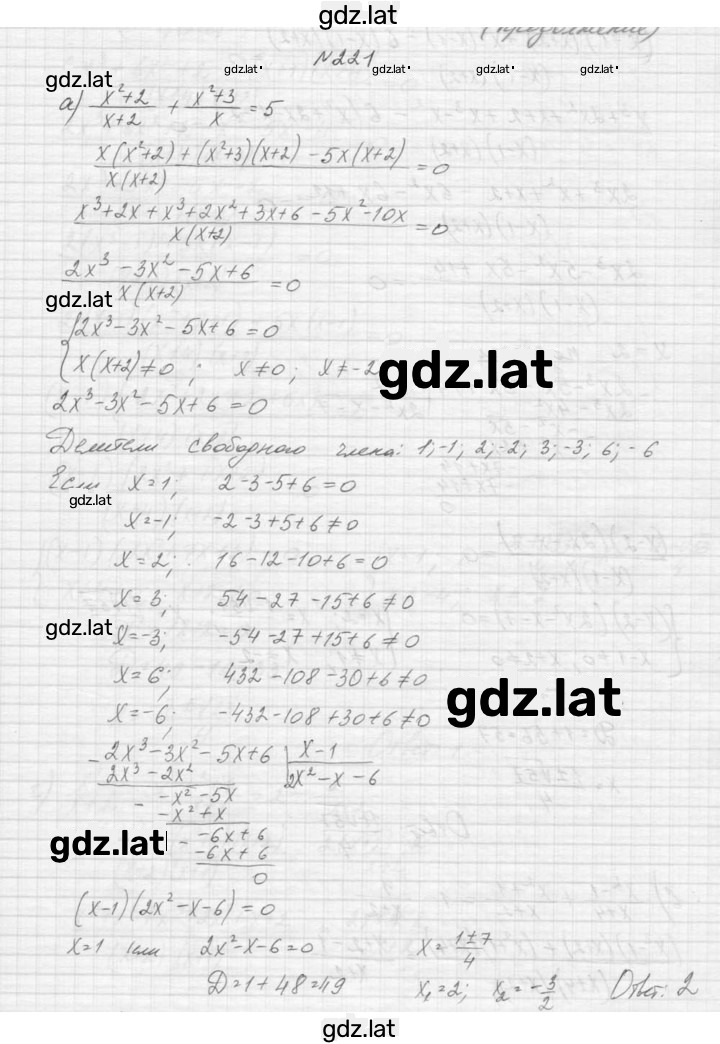 gdz.lat
(продолжение)
№221
gdz.lat gdz.lat gdz.lat gdz.lat gdz.lat
а) (x²+2)/(x+2) + (x²+3)/x = 5
(x(x²+2) + (x²+3)(x+2) - 5x(x+2))/(x(x+2)) = 0
(x³+2x+x³+2x²+3x+6-5x²-10x)/(x(x+2)) = 0
(2x³-3x²-5x+6)/(x(x+2)) = 0
gdz.lat
{2x³-3x²-5x+6=0
{x(x+2)≠0; x≠0; x≠-2
gdz.lat
2x³-3x²-5x+6=0
Делители свободного члена: 1;-1; 2;-2; 3;-3; 6;-6
Если x=1; 2-3-5+6=0
gdz.lat
x=-1; -2-3+5+6≠0
x=2; 16-12-10+6=0
x=3; 54-27-15+6≠0
gdz.lat
x=-3; -54-27+15+6≠0
x=6; 432-108-30+6≠0
gdz.lat
x=-6; -432-108+30+6≠0
- 2x³-3x²-5x+6 | x-1
2x³-2x² | 2x²-x-6
- -x²-5x
-x²+x
gdz.lat
- -6x+6
-6x+6
0
(x-1)(2x²-x-6)=0
x=1 или 2x²-x-6=0 x=(1±7)/4
D=1+48=49 x₁=2; x₂=-3/2 Ответ: 2
gdz.lat